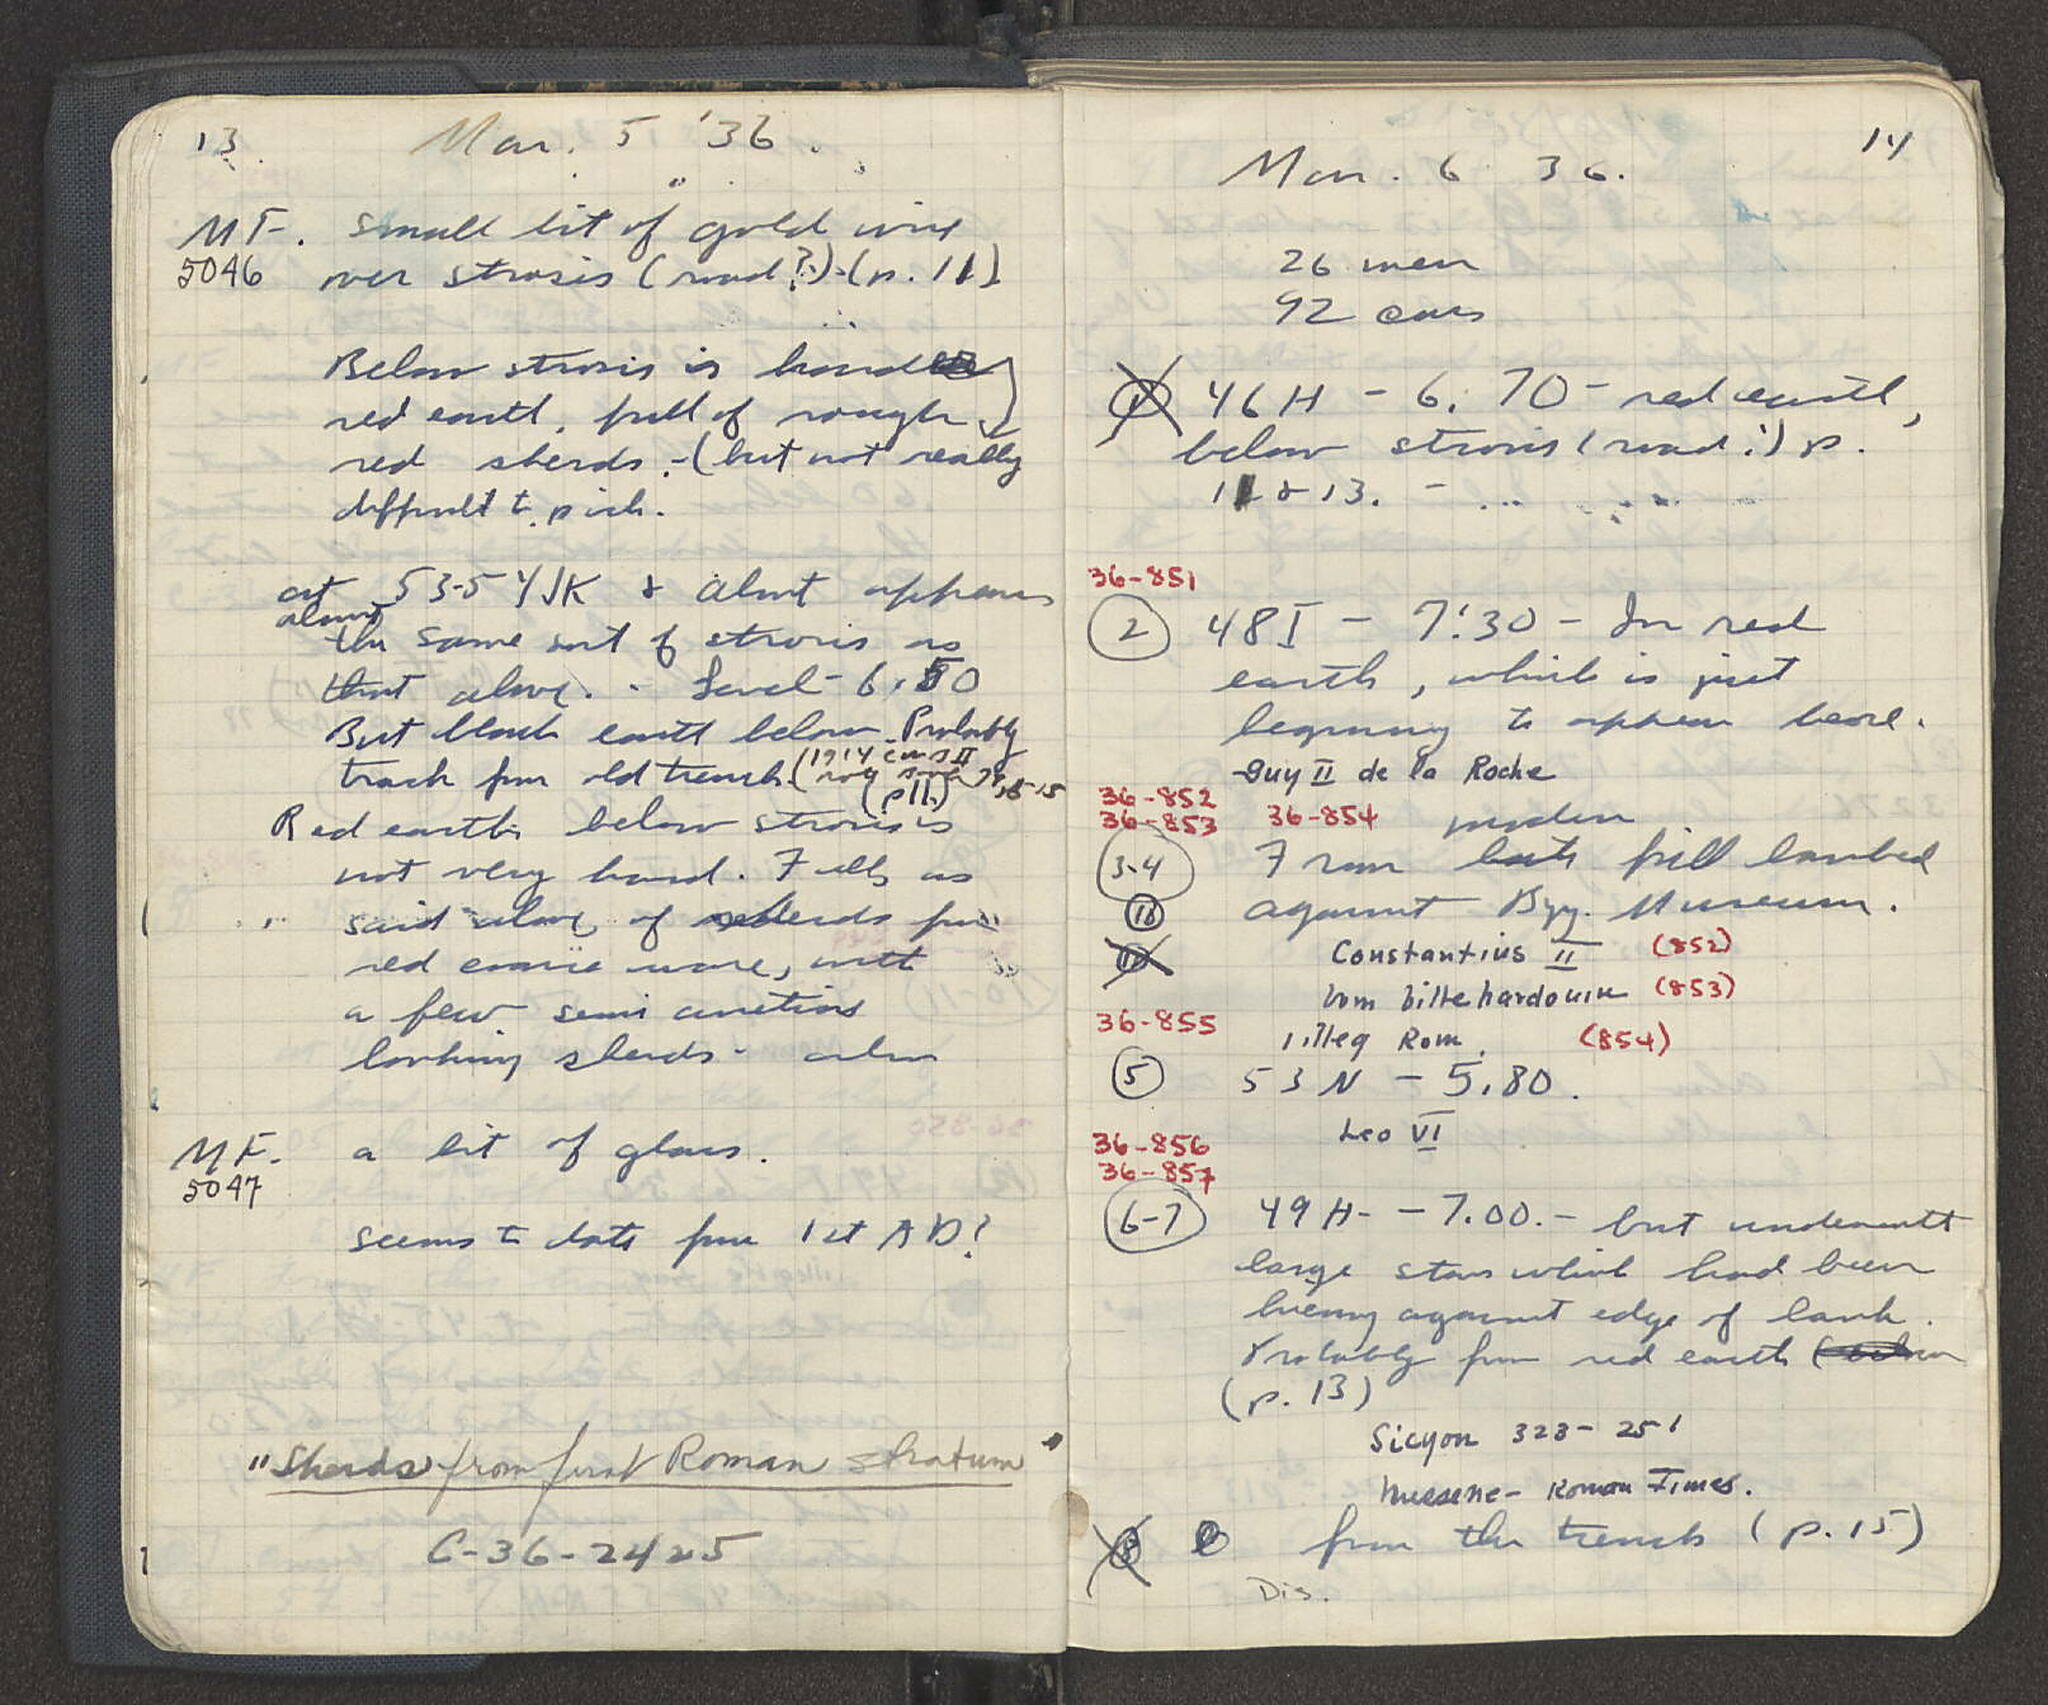 13
Mar. 5 '36.
MF. small bit of gold wire
5046 over strosis (road?) - (p. 11)
Below strosis is hard
red earth, full of rough
red sherds. - (but not really
difficult to pick.
at 53-54 JK & about appears
almost
the same sort of strosis as
that above. - Level - 6.50
But black earth below. Probably
track from old trench (1914
(p 11)
Red earth below strosis is
not very hard. Full, as
said above, of sherds from
red coarse ware, with
a few semi
looking sherds - also
MF. a bit of glass.
5047
seems to date from 1st AD?
"Sherds from first Roman stratum"
C-36-2425
14
Mar. 6 36.
26 men
92 cars
1 46H - 6.70 - red earth,
below strosis (road?) p.
11 & 13. -
36-851
2 48I - 7.30 - In red
earth, which is just
beginning to appear here.
Guy II de la Roche
36-852
36-853 36-854 modern
3-4 From fill banked
16 against Byz. Museum.
Constantius II (852)
Wm Villehardouin (853)
36-855 illeg Rom. (854)
5 53N - 5.80.
Leo VI
36-856
36-857
6-7 49H - 7.00. - but underneath
large stones which had been
lying against edge of bank.
Probably from red earth
(p. 13)
Sicyon 323-251
Messene - Roman Times.
8 from the trench (p. 15)
Dis.